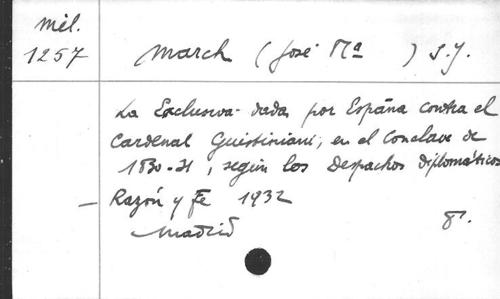 mél.
1257
March (José Mª ) S.J.
La Exclusiva dada por España contra el
Cardenal Guistiniani, en el Conclave de
1830-31, según los Despachos diplomáticos
— Razón y Fe 1932
Madrid 8º.